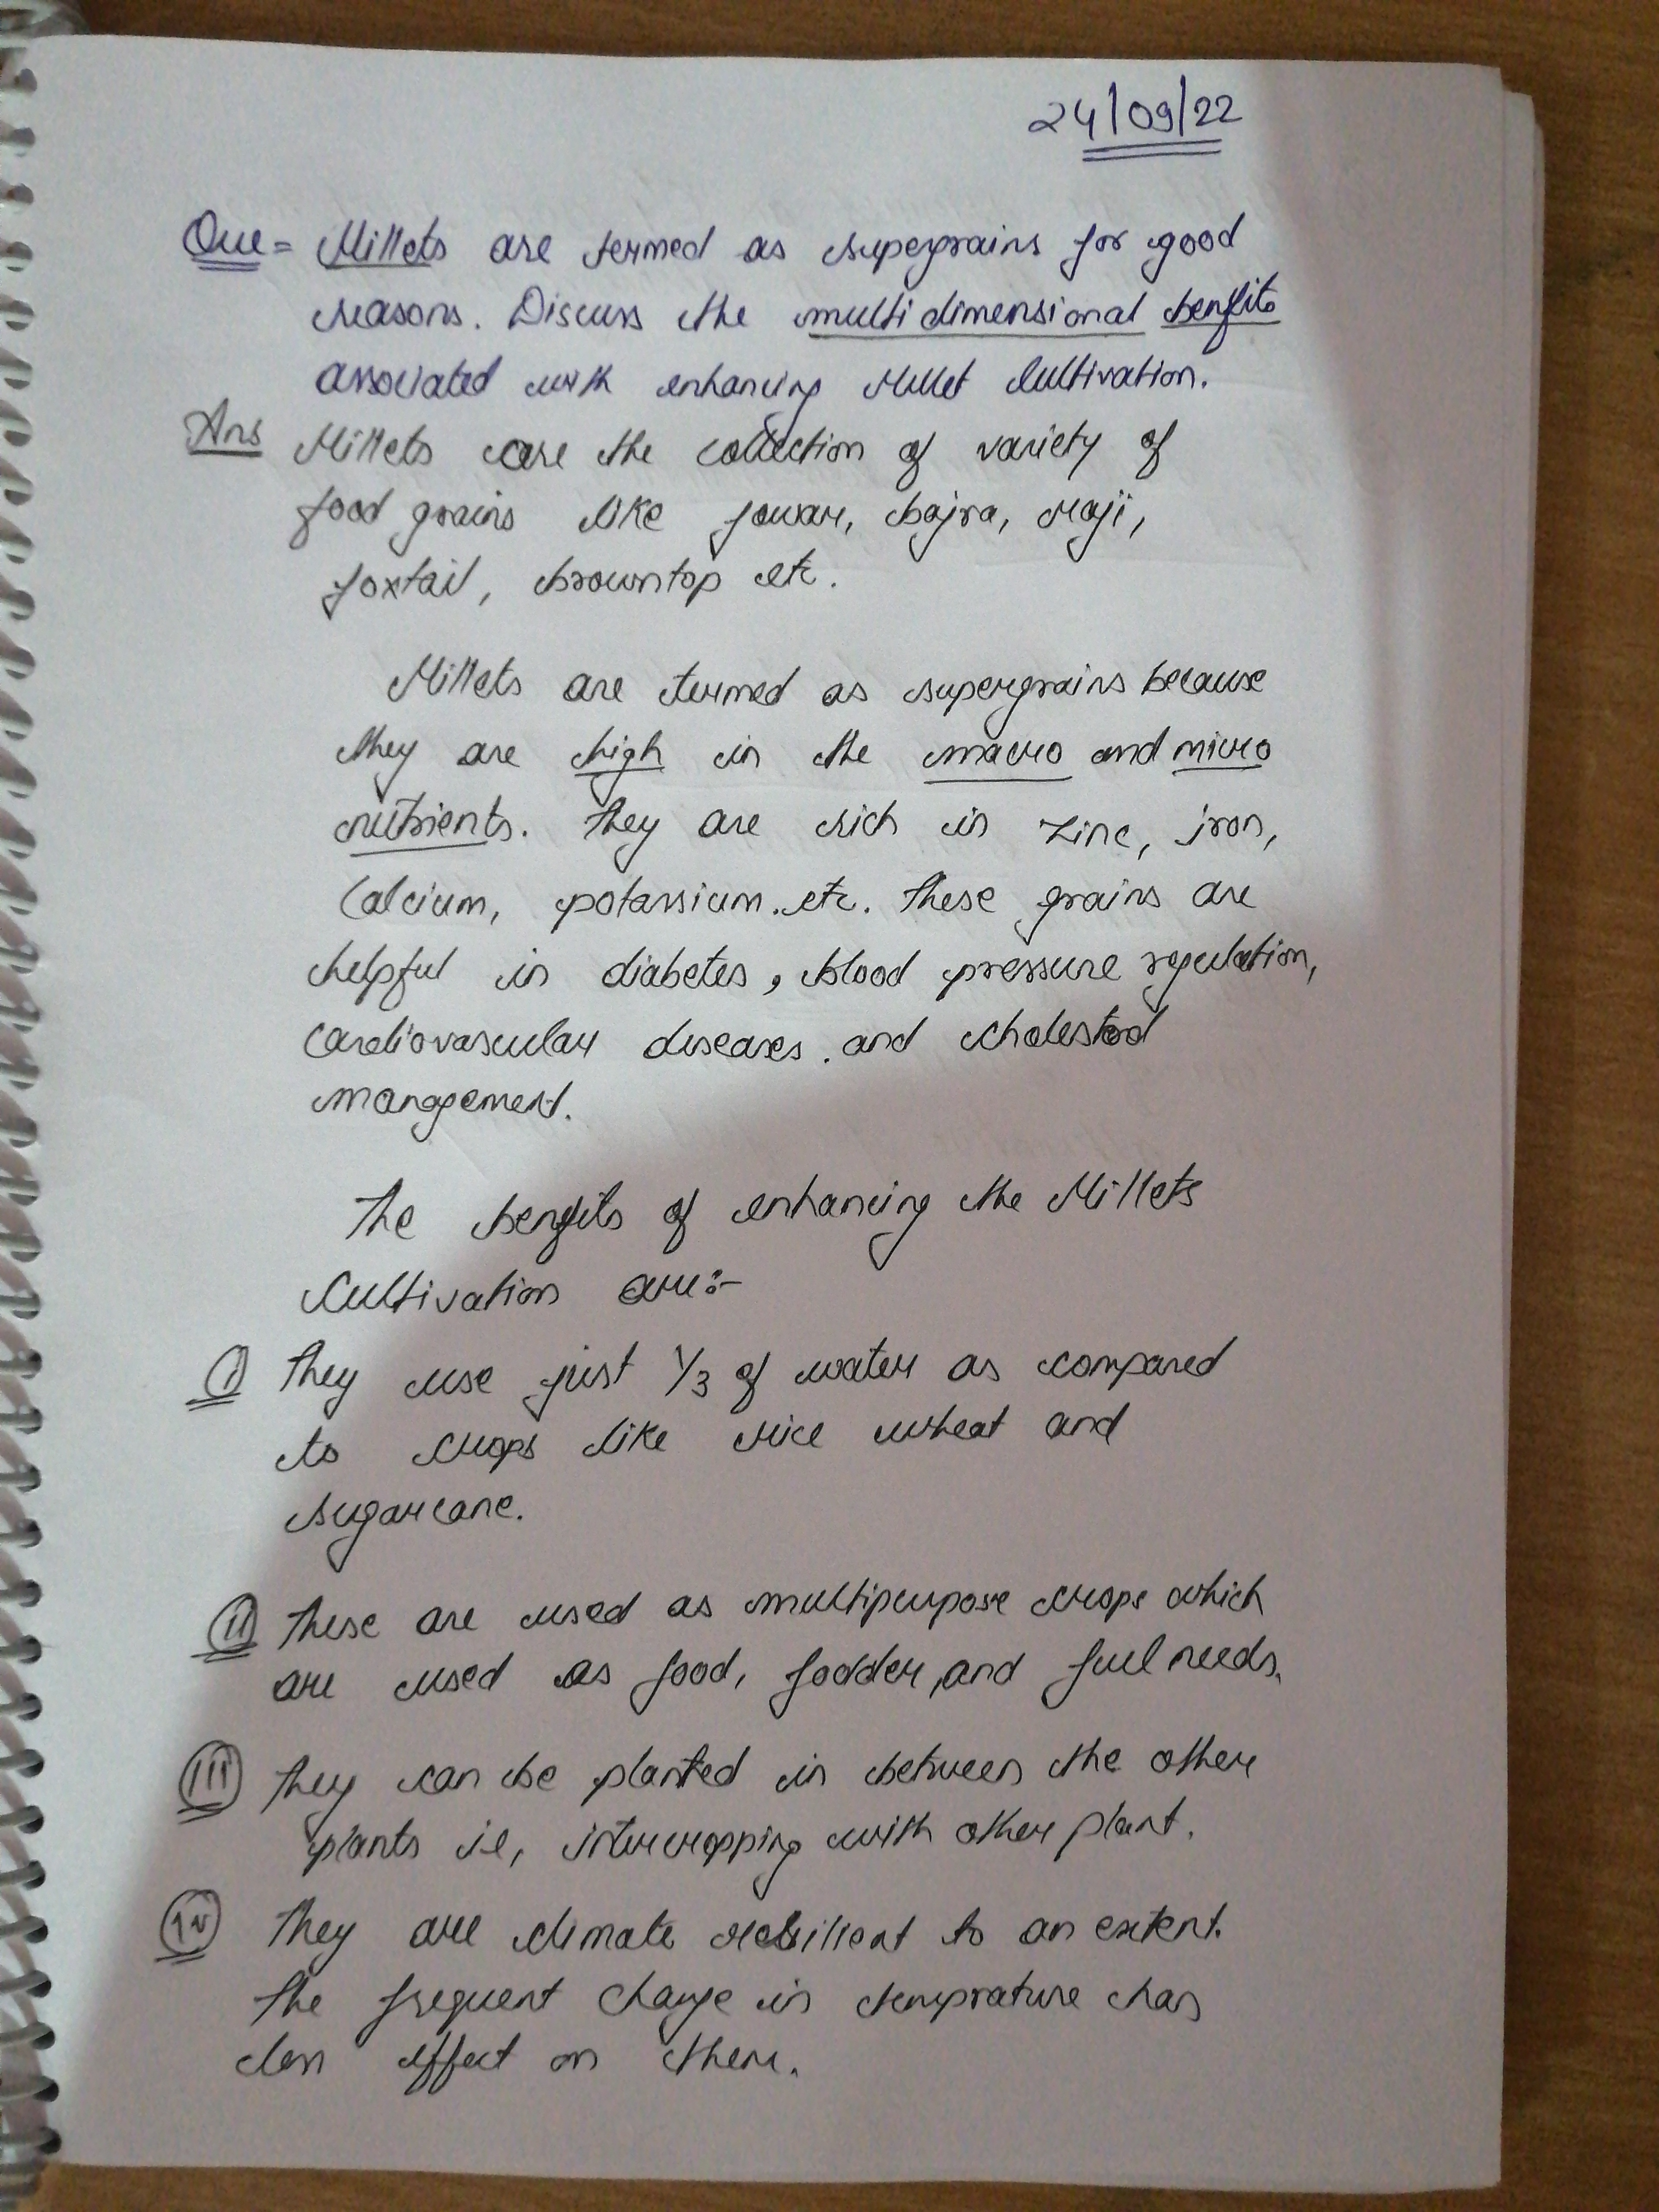 24/09/22
Que = Millets are termed as supergrains for good
reasons. Discuss the multidimensional benfits
associated with enhancing Millet Cultivation.
Ans Millets are the collection of variety of
food grains like jowar, bajra, raji,
foxtail, browntop etc.
Millets are termed as supergrains because
they are high in the macro and micro
nutrients. They are rich in zinc, iron,
Calcium, potassium. etc. These grains are
helpful in diabetes, blood pressure regulation,
cardiovascular diseases. and cholestrol
mangement.
The benfits of enhancing the Millets
Cultivation are:-
(I) They use just 1/3 of water as compared
to crops like rice wheat and
sugarcane.
(II) These are used as multipurpose crops which
are used as food, fodder, and fuel needs.
(III) They can be planted in between the other
plants ie, intercropping with other plant.
(IV) They are climate resilient to an extent.
The frequent change in temprature has
less effect on them.